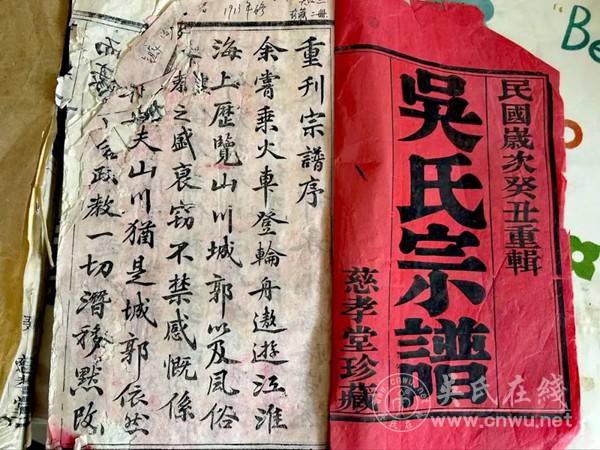 民國歲次癸丑重輯
吳氏宗譜
慈孝堂珍藏
重刊宗譜序
余嘗乘火車登輪舟遨遊江淮
海上歷覽山川城郭以及風俗
之盛衰竊不禁感慨係
夫山川猶是城郭依然
政教一切潛移點改
1913年修
二冊
Be
吳氏在綫
www.cnwu.net